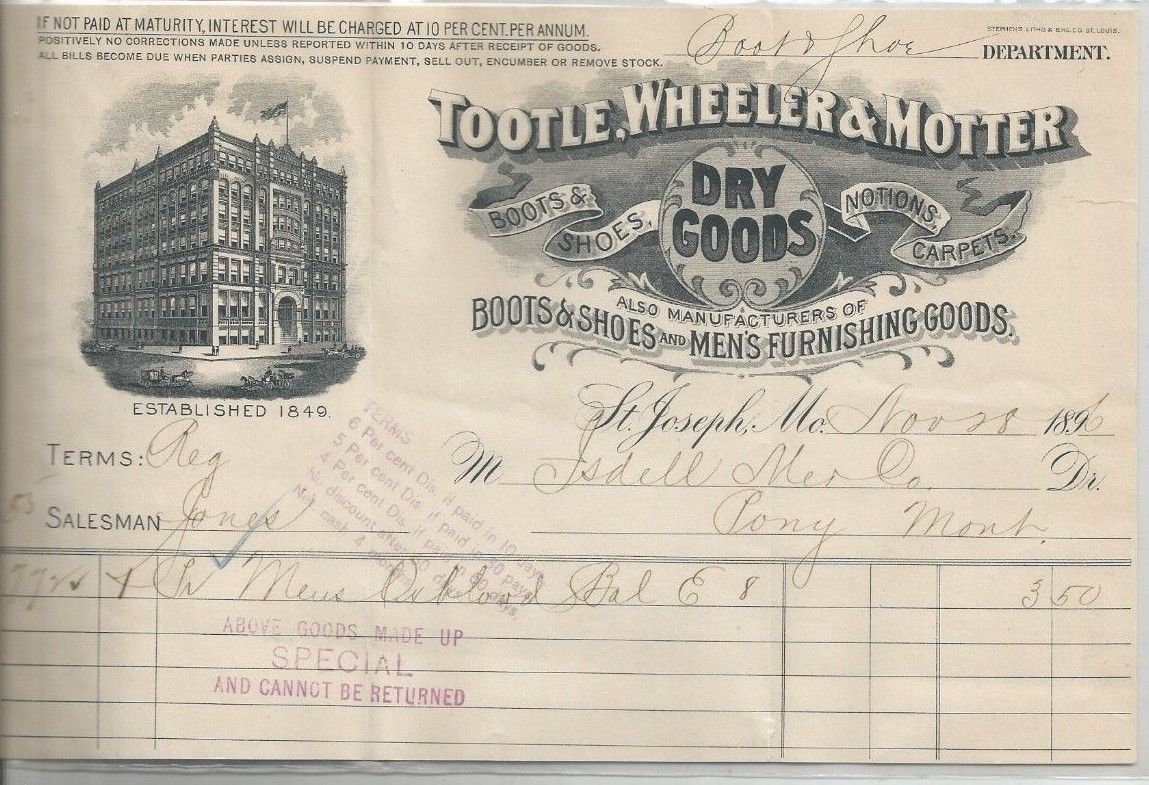 IF NOT PAID AT MATURITY, INTEREST WILL BE CHARGED AT 10 PER CENT. PER ANNUM.
POSITIVELY NO CORRECTIONS MADE UNLESS REPORTED WITHIN 10 DAYS AFTER RECEIPT OF GOODS.
ALL BILLS BECOME DUE WHEN PARTIES ASSIGN, SUSPEND PAYMENT, SELL OUT, ENCUMBER OR REMOVE STOCK.
STEPHENS LITHO & ENG. CO. ST. LOUIS.
Boot & Shoe DEPARTMENT.
TOOTLE, WHEELER & MOTTER
DRY GOODS
BOOTS & SHOES,
NOTIONS, CARPETS,
ALSO MANUFACTURERS OF
BOOTS & SHOES AND MEN'S FURNISHING GOODS.
ESTABLISHED 1849.
St. Joseph, Mo. Nov 28 1896
TERMS: Reg
M Isdell Mer Co. Dr.
SALESMAN Jones
Pony Mont.
TERMS
6 Per cent Dis. if paid in 10 days,
5 Per cent Dis. if paid in 30 days,
4 Per cent Dis. if paid in 60 days,
No discount after 60 days,
Net cash 4 months.
Pr Mens Bal E 8 3 50
ABOVE GOODS MADE UP
SPECIAL
AND CANNOT BE RETURNED